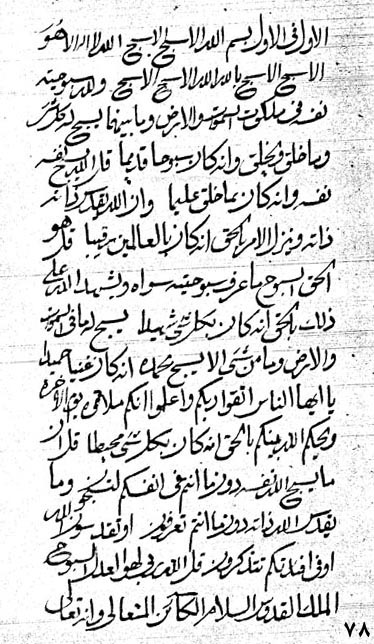 الاول فی الاول بسم الله الاسبح الاسبح الله لا اله الا هو
الاسبح الاسبح بالله الله الاسبح الاسبح ولله سبوحية
نفسه فی ملكوت السموات والارض وما بينهما يسبح له كل شیء
وما خلق ويخلق وانه كان سبوحا قديما قل الله يسبح نفسه
نفسه وانه كان بما خلق عليما وان الله يقدس ذاته
ذاته وينزل الامر بالحق انه كان بالعالمين رقيبا قل هو
الحق السبوح ما عرف سبوحيته سواه ويشهد الله علی
ذلك بالحق انه كان بكل شیء شهيدا يسبح له ما فی السموات
والارض وما من شیء الا يسبح بحمده انه كان غنيا حميدا
يا ايها الناس اتقوا ربكم واعلموا انكم ملاقوه يوم الآخرة
ويحكم الله بينكم بالحق انه كان بكل شیء محيطا قل ان
ما يسبح الله نفسه دون ما انتم فی انفسكم لتسبحون وما
يقدس الله ذاته دون ما انتم تعرفون او تقدسون الله
او فی افئدتكم تتذكرون قل الله ربی لهو العدل السبوح
الملك القدوس السلام الكائن المتعالی وانه تعالی
٧٨